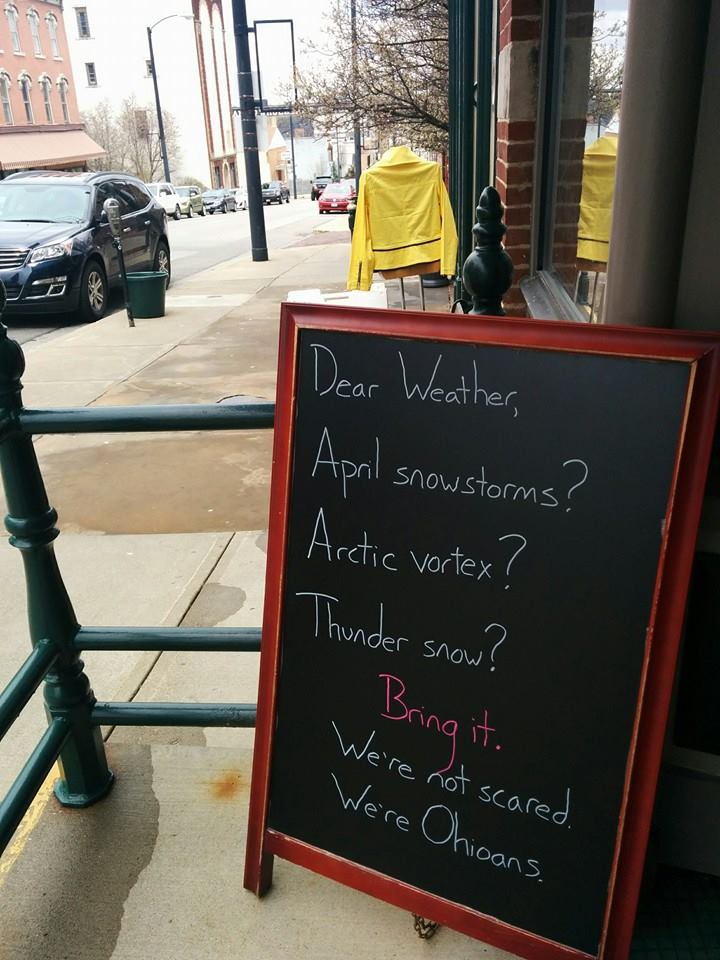 Dear Weather,
April snowstorms?
Arctic vortex?
Thunder snow?
Bring it.
We're not scared.
We're Ohioans.